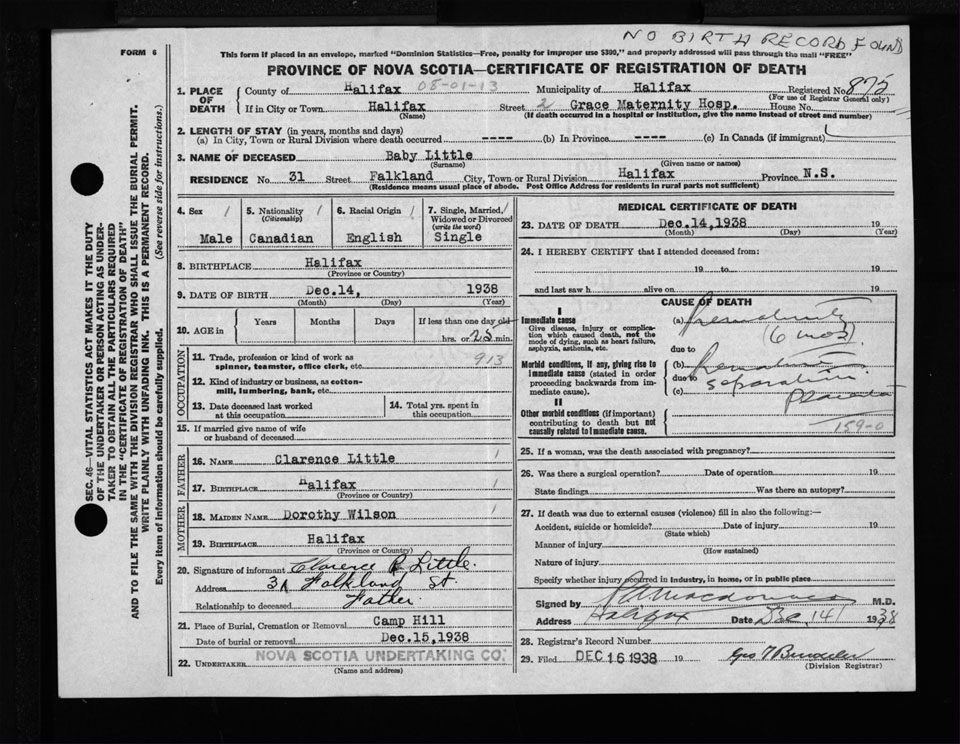 NO BIRTH RECORD FOUND
FORM 6
This form if placed in an envelope, marked "Dominion Statistics—Free, penalty for improper use $300," and properly addressed will pass through the mail "FREE"
PROVINCE OF NOVA SCOTIA—CERTIFICATE OF REGISTRATION OF DEATH
1. PLACE OF DEATH
County of Halifax 08-01-13 Municipality of Halifax Registered No. 875
(For use of Registrar General only)
If in City or Town Halifax Street 2 Grace Maternity Hosp. House No.
(Name) (If death occurred in a hospital or institution, give the name instead of street and number)
2. LENGTH OF STAY (in years, months and days)
(a) In City, Town or Rural Division where death occurred ---- (b) In Province ---- (c) In Canada (if immigrant)
3. NAME OF DECEASED Baby Little
(Surname) (Given name or names)
RESIDENCE No. 31 Street Falkland City, Town or Rural Division Halifax Province N.S.
(Residence means usual place of abode. Post Office Address for residents in rural parts not sufficient)
4. Sex 1 Male
5. Nationality 1 (Citizenship) Canadian
6. Racial Origin 1 English
7. Single, Married, Widowed or Divorced (write the word) 1 Single
8. BIRTHPLACE Halifax
(Province or Country)
9. DATE OF BIRTH Dec.14, 1938
(Month) (Day) (Year)
10. AGE in Years Months Days If less than one day old
hrs. or 25 min.
OCCUPATION
11. Trade, profession or kind of work as spinner, teamster, office clerk, etc. 913
12. Kind of industry or business, as cotton-mill, lumbering, bank, etc.
13. Date deceased last worked at this occupation
14. Total yrs. spent in this occupation
15. If married give name of wife or husband of deceased
FATHER
16. NAME Clarence Little 1
17. BIRTHPLACE Halifax 1
(Province or Country)
MOTHER
18. MAIDEN NAME Dorothy Wilson 1
19. BIRTHPLACE Halifax
(Province or Country)
20. Signature of informant Clarence R Little.
Address 31 Falkland St.
Relationship to deceased Father.
21. Place of Burial, Cremation or Removal Camp Hill
Date of burial or removal Dec.15,1938
22. UNDERTAKER NOVA SCOTIA UNDERTAKING CO.
(Name and address)
MEDICAL CERTIFICATE OF DEATH
23. DATE OF DEATH Dec.14,1938 19
(Month) (Day) (Year)
24. I HEREBY CERTIFY that I attended deceased from:
19 to 19
and last saw h alive on 19
CAUSE OF DEATH
I
Immediate cause
Give disease, injury or complication which caused death, not the mode of dying, such as heart failure, asphyxia, asthenia, etc.
(a) Prematurity
(6 mos)
due to
Morbid conditions, if any, giving rise to immediate cause (stated in order proceeding backwards from immediate cause).
(b) Premature
due to separation
(c) Placenta
II
Other morbid conditions (if important) contributing to death but not causally related to immediate cause.
159-0
25. If a woman, was the death associated with pregnancy?
26. Was there a surgical operation? Date of operation 19
State findings Was there an autopsy?
27. If death was due to external causes (violence) fill in also the following:—
Accident, suicide or homicide? Date of injury 19
(State which)
Manner of injury
(How sustained)
Nature of injury
Specify whether injury occurred in industry, in home, or in public place
Signed by M.D.
Address Halifax Date Dec 14 1938
28. Registrar's Record Number
29. Filed DEC 16 1938 19
(Division Registrar)
SEC. 46—VITAL STATISTICS ACT MAKES IT THE DUTY
OF THE UNDERTAKER OR PERSON ACTING AS UNDER-
TAKER TO OBTAIN ALL THE PARTICULARS REQUIRED
IN THE "CERTIFICATE OF REGISTRATION OF DEATH"
AND TO FILE THE SAME WITH THE DIVISION REGISTRAR WHO SHALL ISSUE THE BURIAL PERMIT.
WRITE PLAINLY WITH UNFADING INK. THIS IS A PERMANENT RECORD.
Every item of information should be carefully supplied. (See reverse side for instructions.)